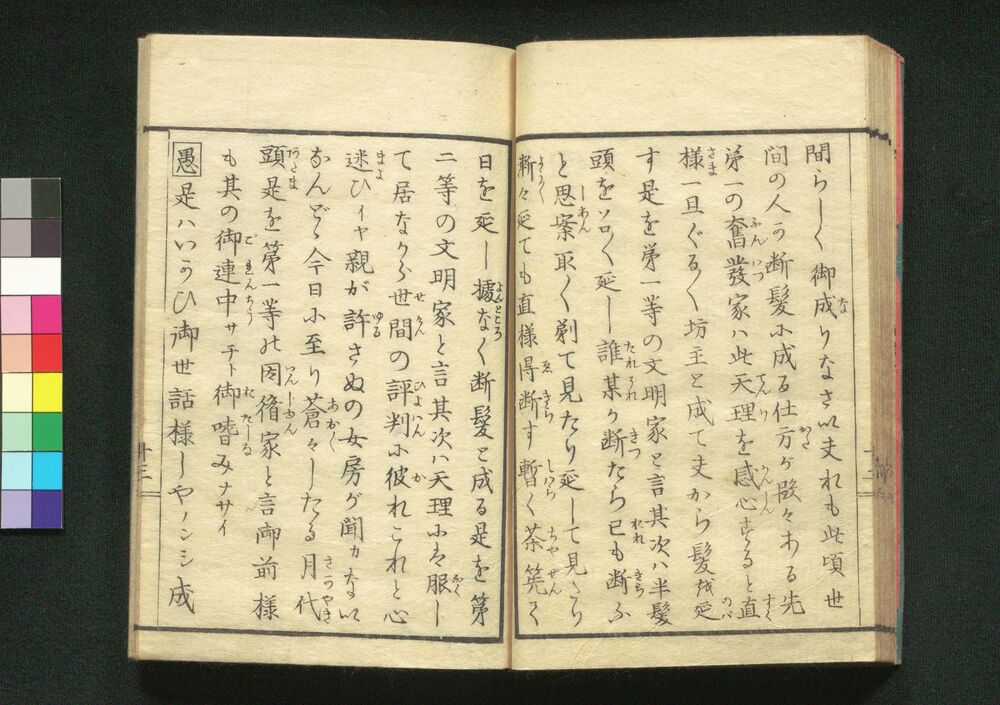 間らしく御成りなさい夫れも此頃世
間の人の断髪に成る仕方が段々ある先
第一の奮發家ハ此天理を感心すると直
様一旦ぐる〳〵坊主と成て夫から髪を延
す是を第一等の文明家と言其次ハ半髪
頭をソロ〳〵延し誰某が断たら已も断ふ
と思案取〳〵剃て見たり延して見たり
漸々延ても直様得断す暫く茶筅〳〵
日を延し據なく断髪と成る是を第
二等の文明家と言其次ハ天理に服し
て居ながら世間の評判に彼れこれと心
迷ひイヤ親が許さぬの女房が聞カない
なんどゝ今日に至り蒼々したる月代
頭是を第一等の因循家と言御前様
も其の御連中サチト御嗜みナサイ
愚是ハいかひ御世話様しやノンシ成
十三